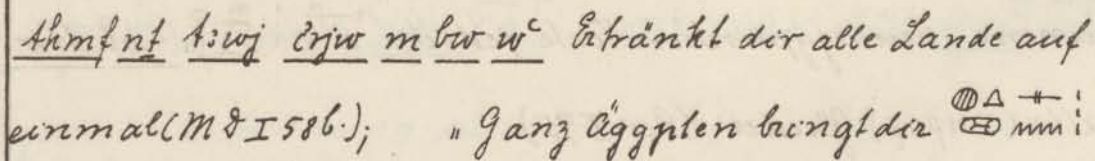 thmf nt tꜣwj m bw wᶜ Ertränkt dir alle Lande auf
einmal (M D I 58b.); „Ganz Ägypten bringt dir